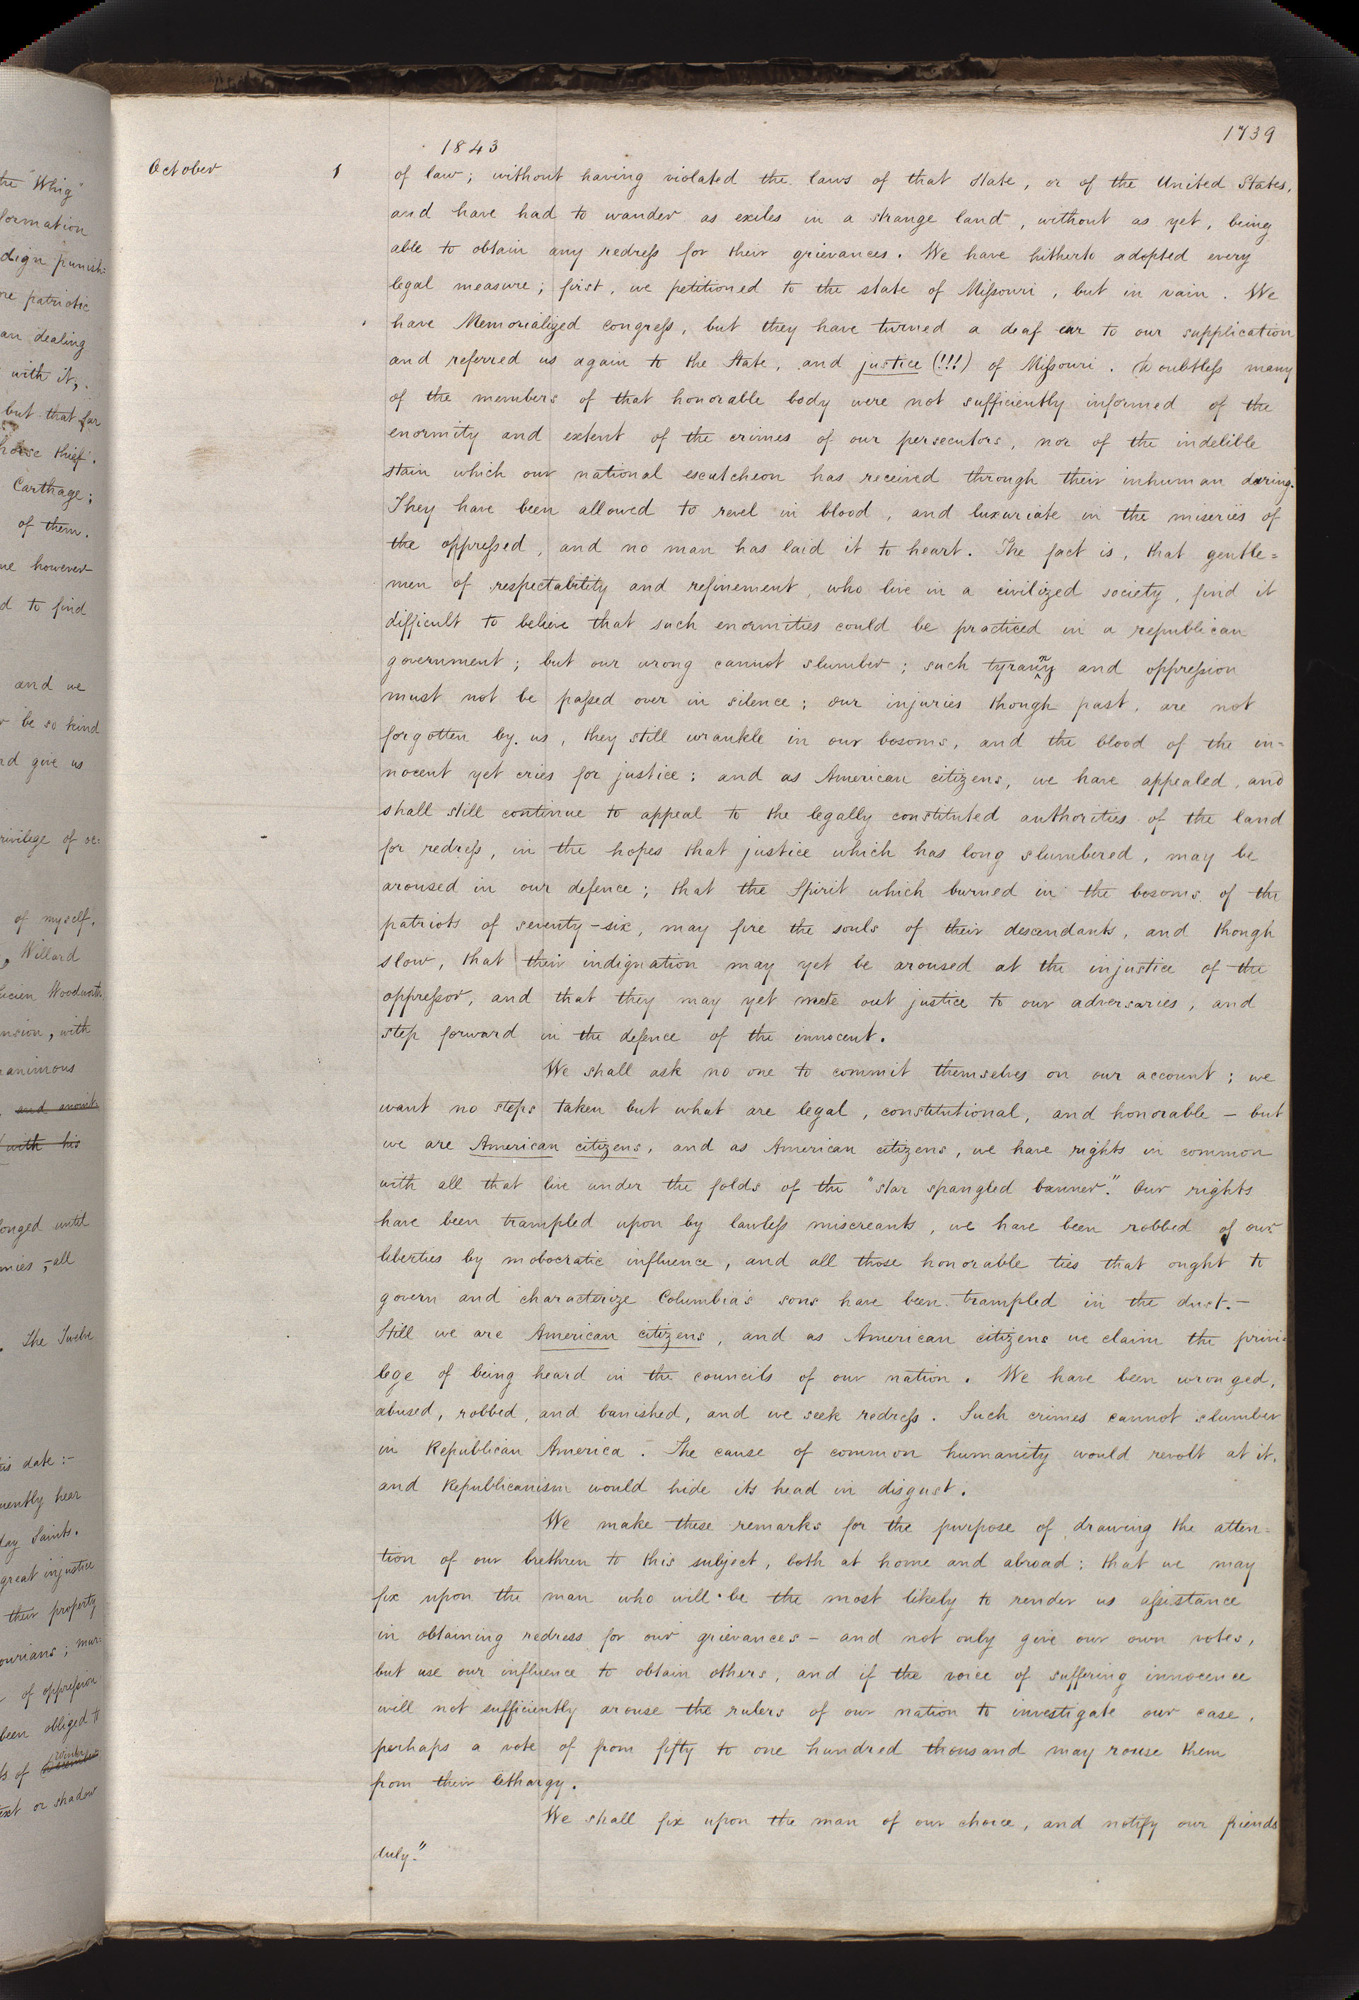 the "Whig"
formation
dign punish:
re patriotic
an dealing
with it,
but that far
horse thief.
Carthage;
of them.
me however
d to find
and we
be so kind
nd give us
rivilege of se:
of myself.
, Willard
ucien Woodworth
nsion, with
nanimous
and anoint
with his
longed until
mies;-all
. The Twelve
is date:-
uently hear
day Saints.
great injustice
their property
ourians; mur:
of oppression
been obliged to
winter
ts of
ext or shadow
1739
1843
October 1
of law; without having violated the laws of that state, or of the United States,
and have had to wander as exiles in a strange land, without as yet, being
able to obtain any redress for their grievances. We have hitherto adopted every
legal measure; first, we petitioned to the state of Missouri, but in vain. We
have Memorialized congress, but they have turned a deaf ear to our supplication
and referred us again to the State, and justice (!!!) of Missouri. Doubtless many
of the members of that honorable body were not sufficiently informed of the
enormity and extent of the crimes of our persecutors, nor of the indelible
stain which our national escutcheon has received through their inhuman daring.
They have been allowed to revel in blood, and luxuriate in the miseries of
the oppressed, and no man has laid it to heart. The fact is, that gentle=
men of respectability and refinement, who live in a civilized society, find it
difficult to believe that such enormities could be practiced in a republican
government; but our wrong cannot slumber; such tyranny and oppression
must not be passed over in silence; our injuries though past, are not
forgotten by us, they still wrankle in our bosoms, and the blood of the in=
nocent yet cries for justice: and as American citizens, we have appealed, and
shall still continue to appeal to the legally constituted authorities of the land
for redress, in the hopes that justice which has long slumbered, may be
aroused in our defence; that the Spirit which burned in the bosoms of the
patriots of seventy-six, may fire the souls of their descendants, and though
slow, that their indignation may yet be aroused at the injustice of the
oppressor, and that they may yet mete out justice to our adversaries, and
step forward in the defence of the innocent.
We shall ask no one to commit themselves on our account; we
want no steps taken but what are legal, constitutional, and honorable - but
we are American citizens, and as American citizens, we have rights in common
with all that live under the folds of the "star spangled banner." Our rights
have been trampled upon by lawless miscreants, we have been robbed of our
liberties by mobocratic influence, and all those honorable ties that ought to
govern and characterize Columbia's sons have been trampled in the dust.-
Still we are American citizens, and as American citizens we claim the privi-
lege of being heard in the councils of our nation. We have been wronged,
abused, robbed, and banished, and we seek redress. Such crimes cannot slumber
in Republican America. The cause of common humanity would revolt at it,
and Republicanism would hide its head in disgust.
We make these remarks for the purpose of drawing the atten=
tion of our brethren to this subject, both at home and abroad; that we may
fix upon the man who will be the most likely to render us assistance
in obtaining redress for our grievances - and not only give our own votes,
but use our influence to obtain others, and if the voice of suffering innocence
will not sufficiently arouse the rulers of our nation to investigate our case,
perhaps a vote of from fifty to one hundred thousand may rouse them
from their lethargy.
We shall fix upon the man of our choice, and notify our friends
duly."